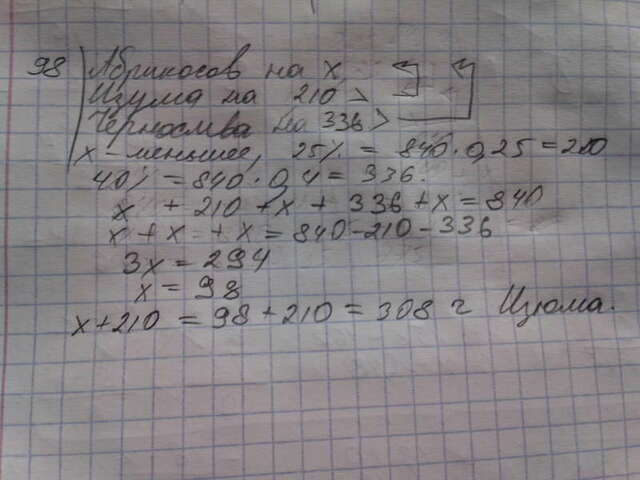 98 Абрикосов на х
Изюма на 210 >
Чернослива на 336 >
х - меньшее, 25% = 840 · 0,25 = 210
40% = 840 · 0,4 = 336.
х + 210 + х + 336 + х = 840
х + х + х = 840 - 210 - 336
3х = 294
х = 98
х + 210 = 98 + 210 = 308 г Изюма.